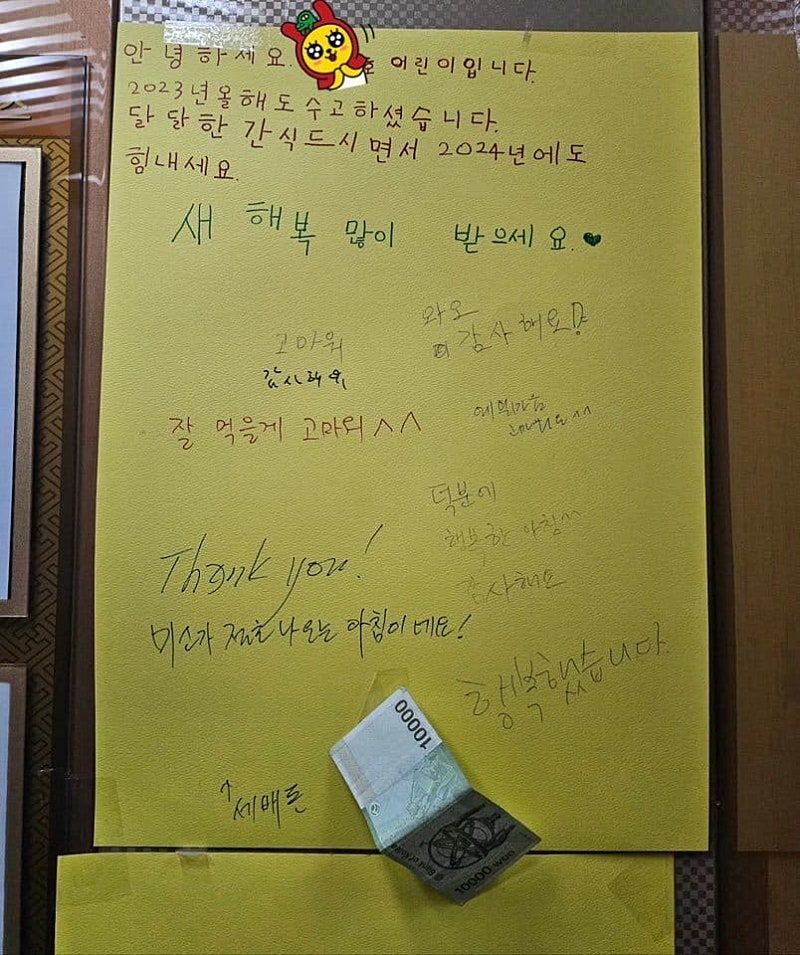 안녕하세요. 호 어린이입니다.
2023년올해도 수고하셨습니다.
달달한 간식드시면서 2024년에도
힘내세요.
새해복 많이 받으세요.♥
와오
고마워
감사해요!
감사해워
잘 먹을게 고마워^^
예쁜마음
고마워요^^
덕분에
행복한 아침^^
감사해요
Thank you!
미소가 절로 나오는 아침이네요!
행복했습니다.
↑세배돈
10000
Bank of Korea
10000 won